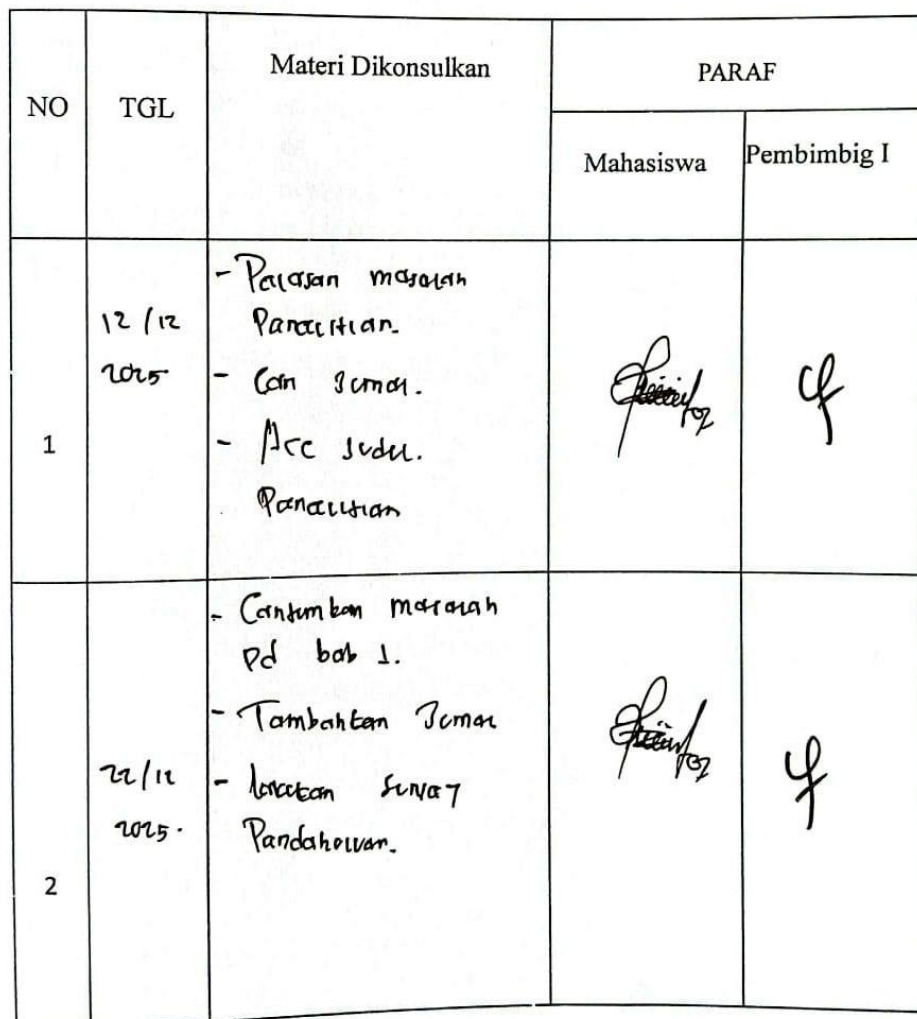 NO
TGL
Materi Dikonsulkan
PARAF
Mahasiswa
Pembimbig I
1
12/12
2025
- masalah
Penelitian.
- Cari Jurnal.
- Acc Judul.
Penelitian
2
22/12
2025.
- Cantumkan masalah
pd bab 1.
- Tambahkan Jurnal
- Lakukan Survey
Pendahuluan.